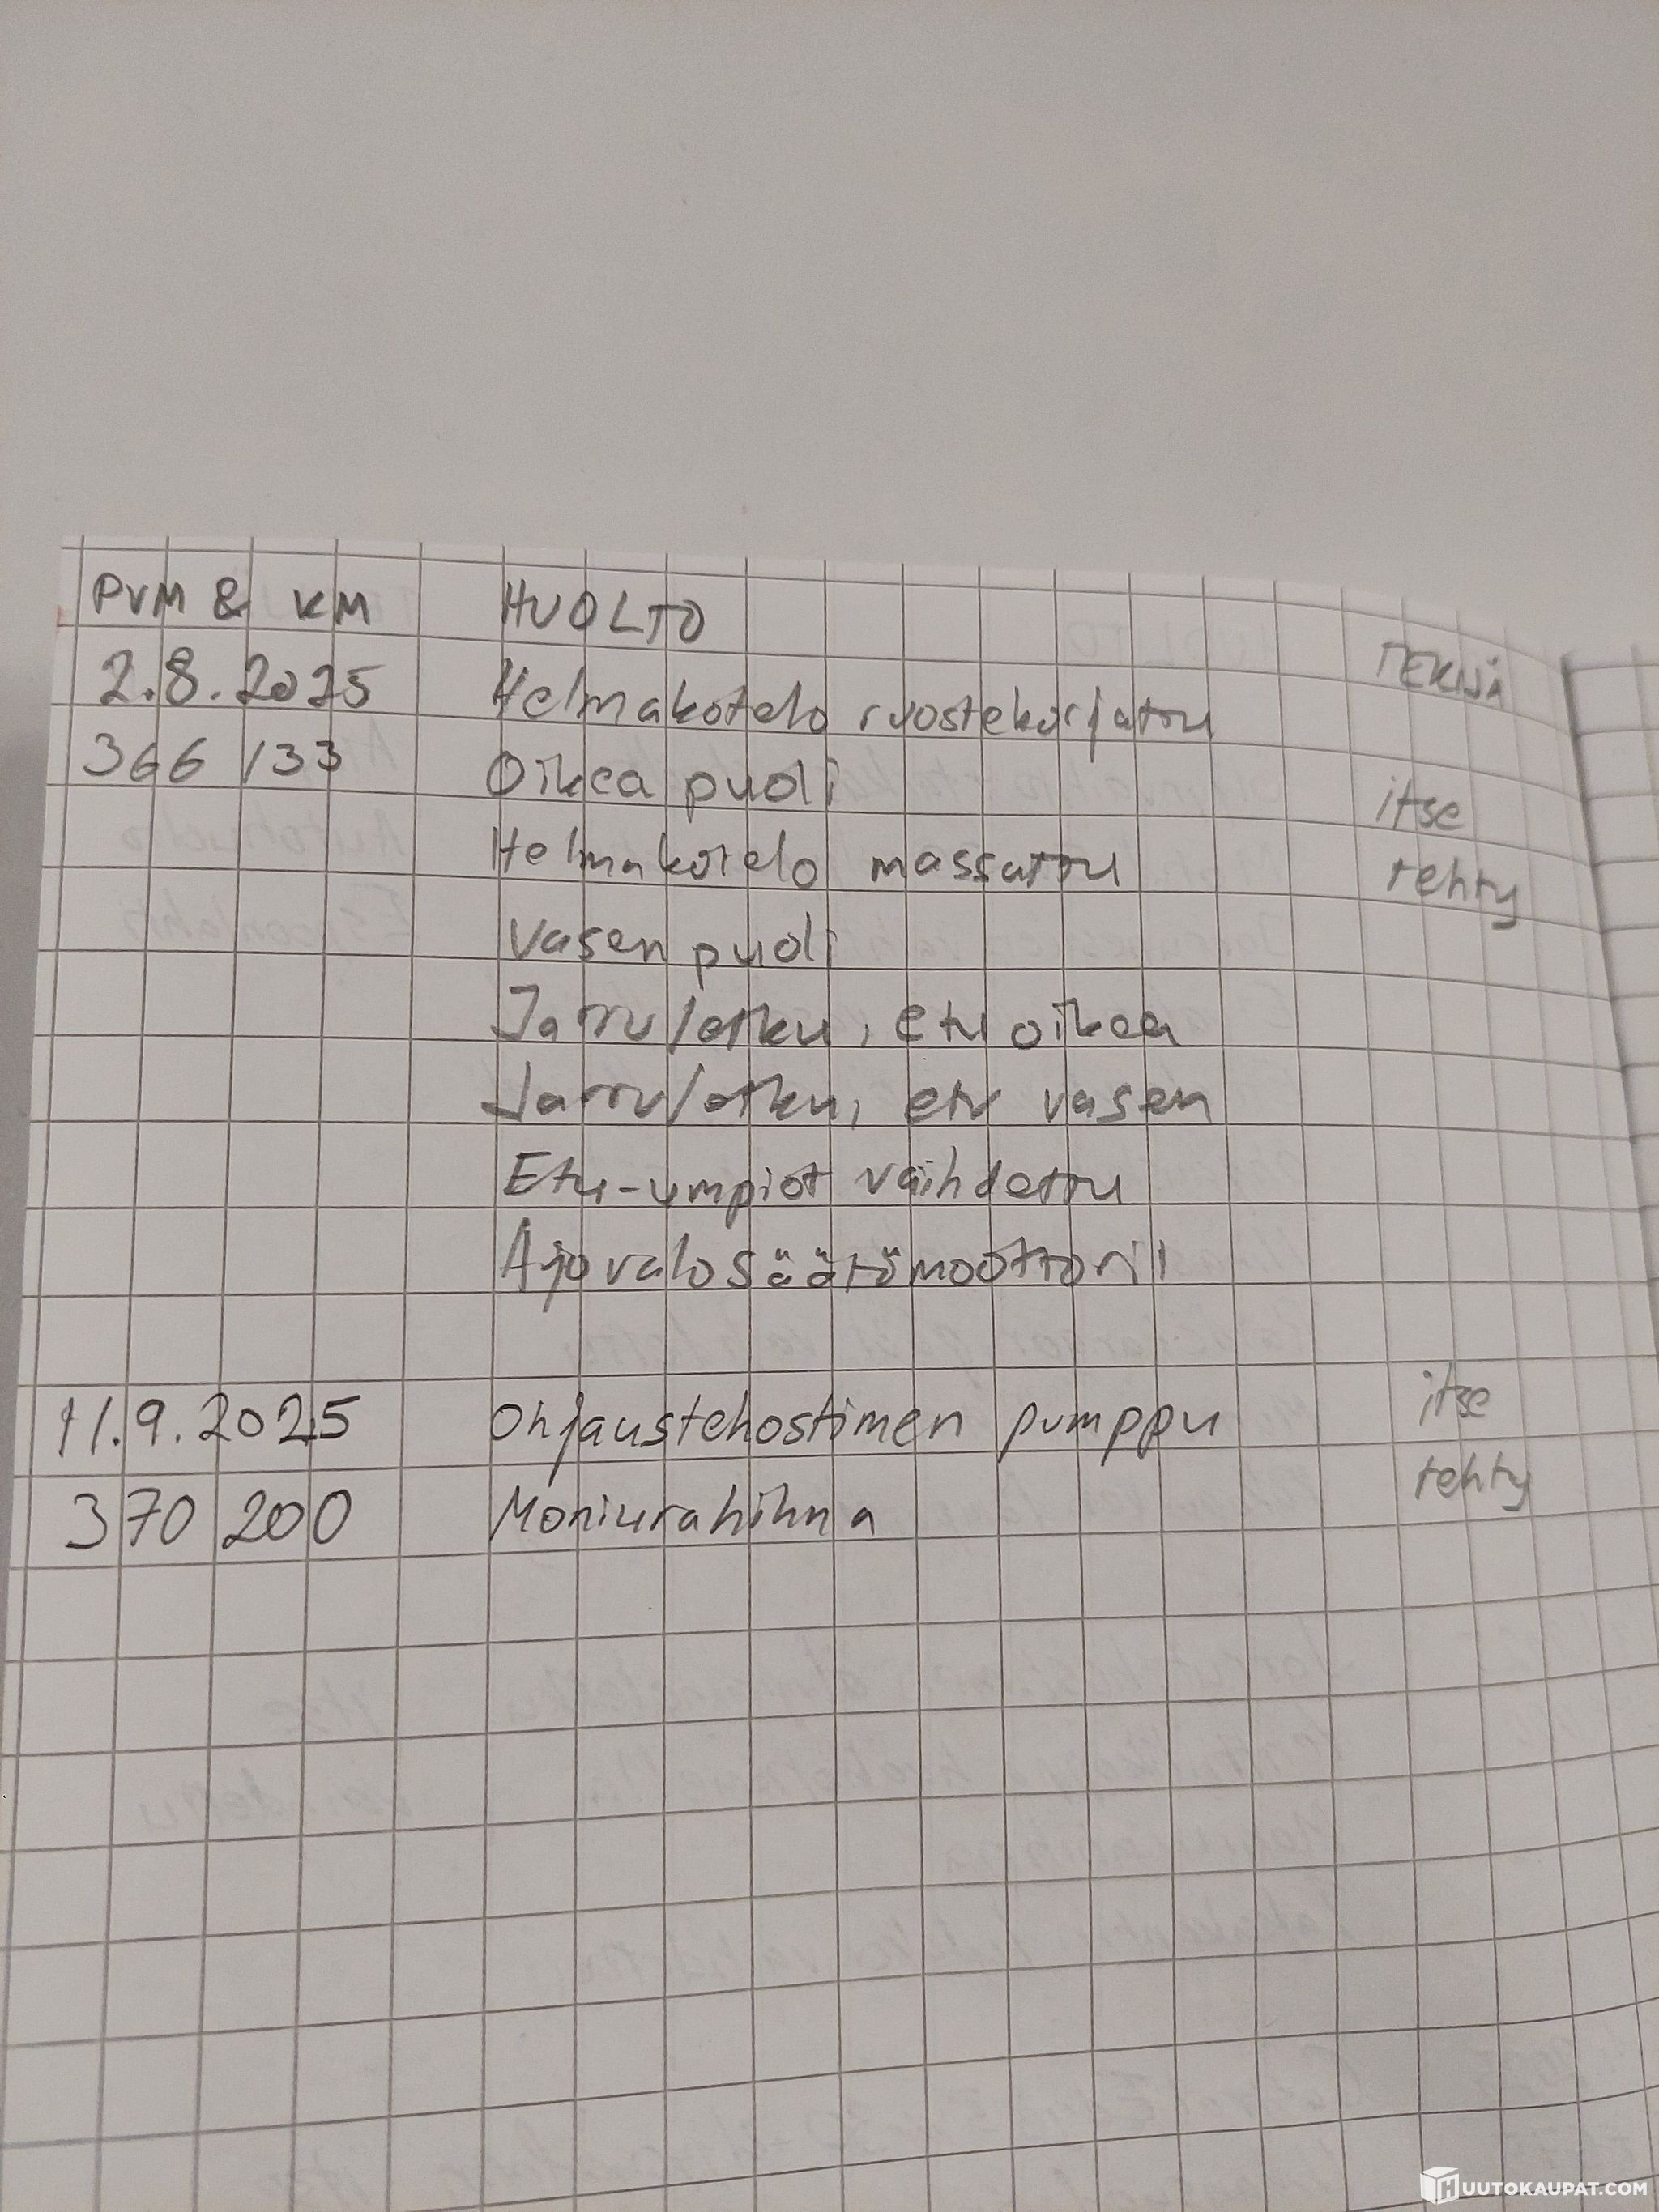 PVM & KM HUOLTO TEKIJÄ
2.8.2025 Helmakotelo ruostekorjattu
366 133 Oikea puoli itse
Helmakotelo massattu tehty
Vasen puoli
Jarruletku, etu oikea
Jarruletku, etu vasen
Etu-umpiot vaihdettu
Ajovalosäätömoottorit
11.9.2025 Ohjaustehostimen pumppu itse
370 200 Moniurahihna tehty
HUUTOKAUPAT.COM